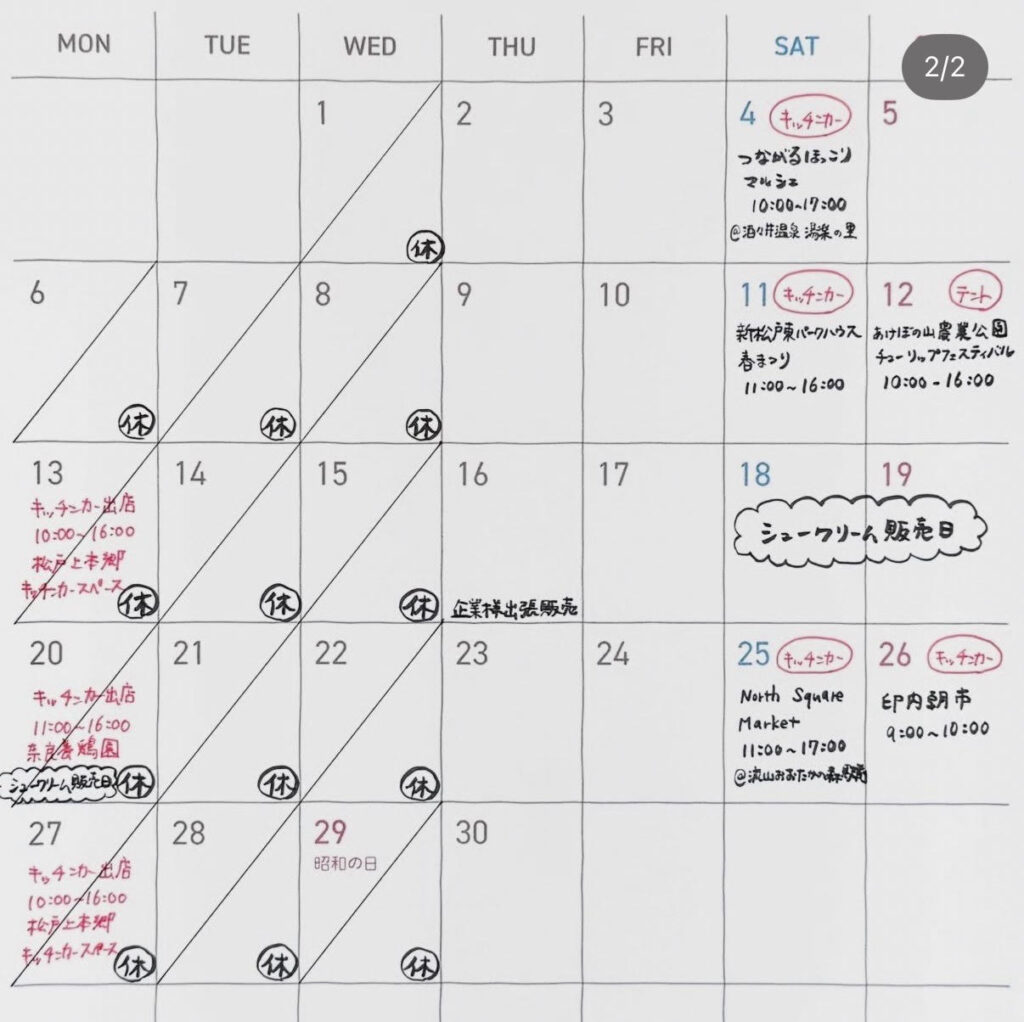 MON TUE WED THU FRI SAT
2/2
1
休
2
3
4 キッチンカー
つながるほっこり
マルシェ
10:00~17:00
@酒々井温泉 湯楽の里
5
6
休
7
休
8
休
9
10
11 キッチンカー
新松戸東パークハウス
春まつり
11:00~16:00
12 テント
あけぼの山農業公園
チューリップフェスティバル
10:00-16:00
13
キッチンカー出店
10:00~16:00
松戸上本郷
キッチンカースペース
休
14
休
15
休
16
企業様出張販売
17
18 19
シュークリーム販売日
20
キッチンカー出店
11:00~16:00
奈良養鶏園
シュークリーム販売日
休
21
休
22
休
23
24
25 キッチンカー
North Square
Market
11:00~17:00
@流山おおたかの森駅前
26 キッチンカー
印内朝市
9:00~10:00
27
キッチンカー出店
10:00~16:00
松戸上本郷
キッチンカースペース
休
28
休
29
昭和の日
休
30